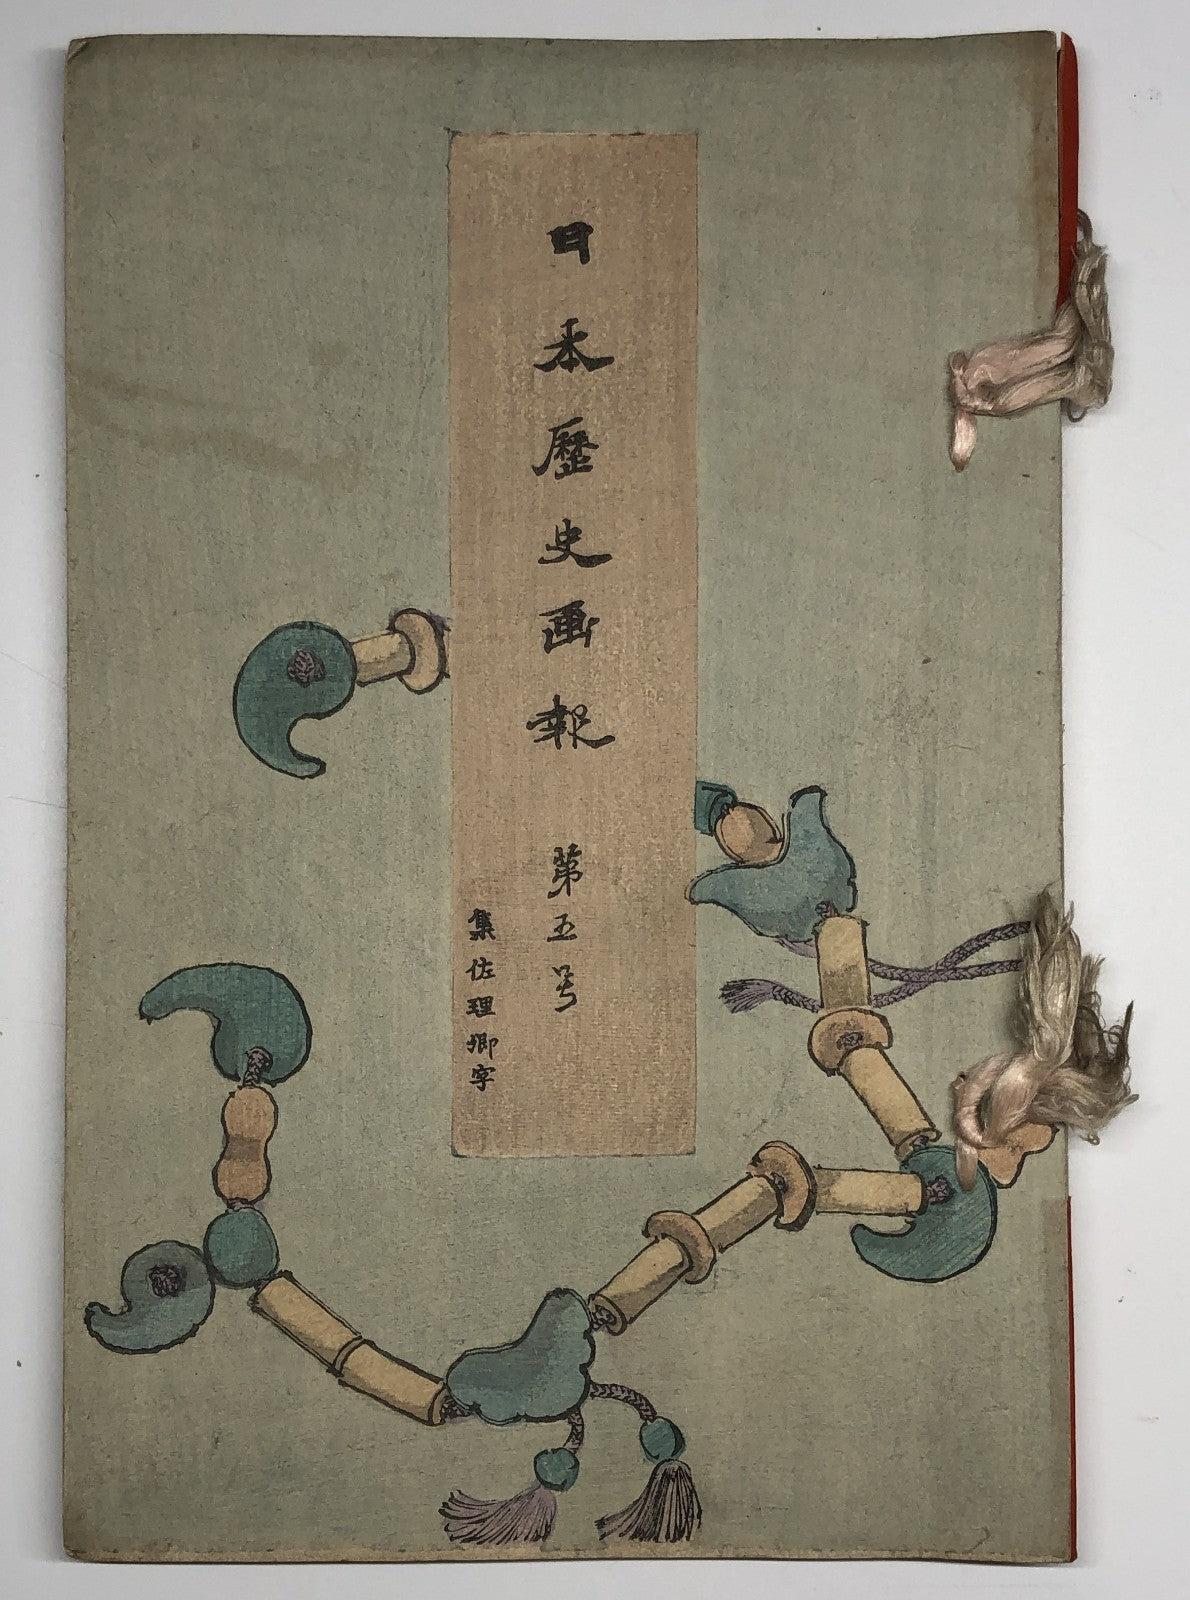 日本歷史画報 第五号
集佐理卿字